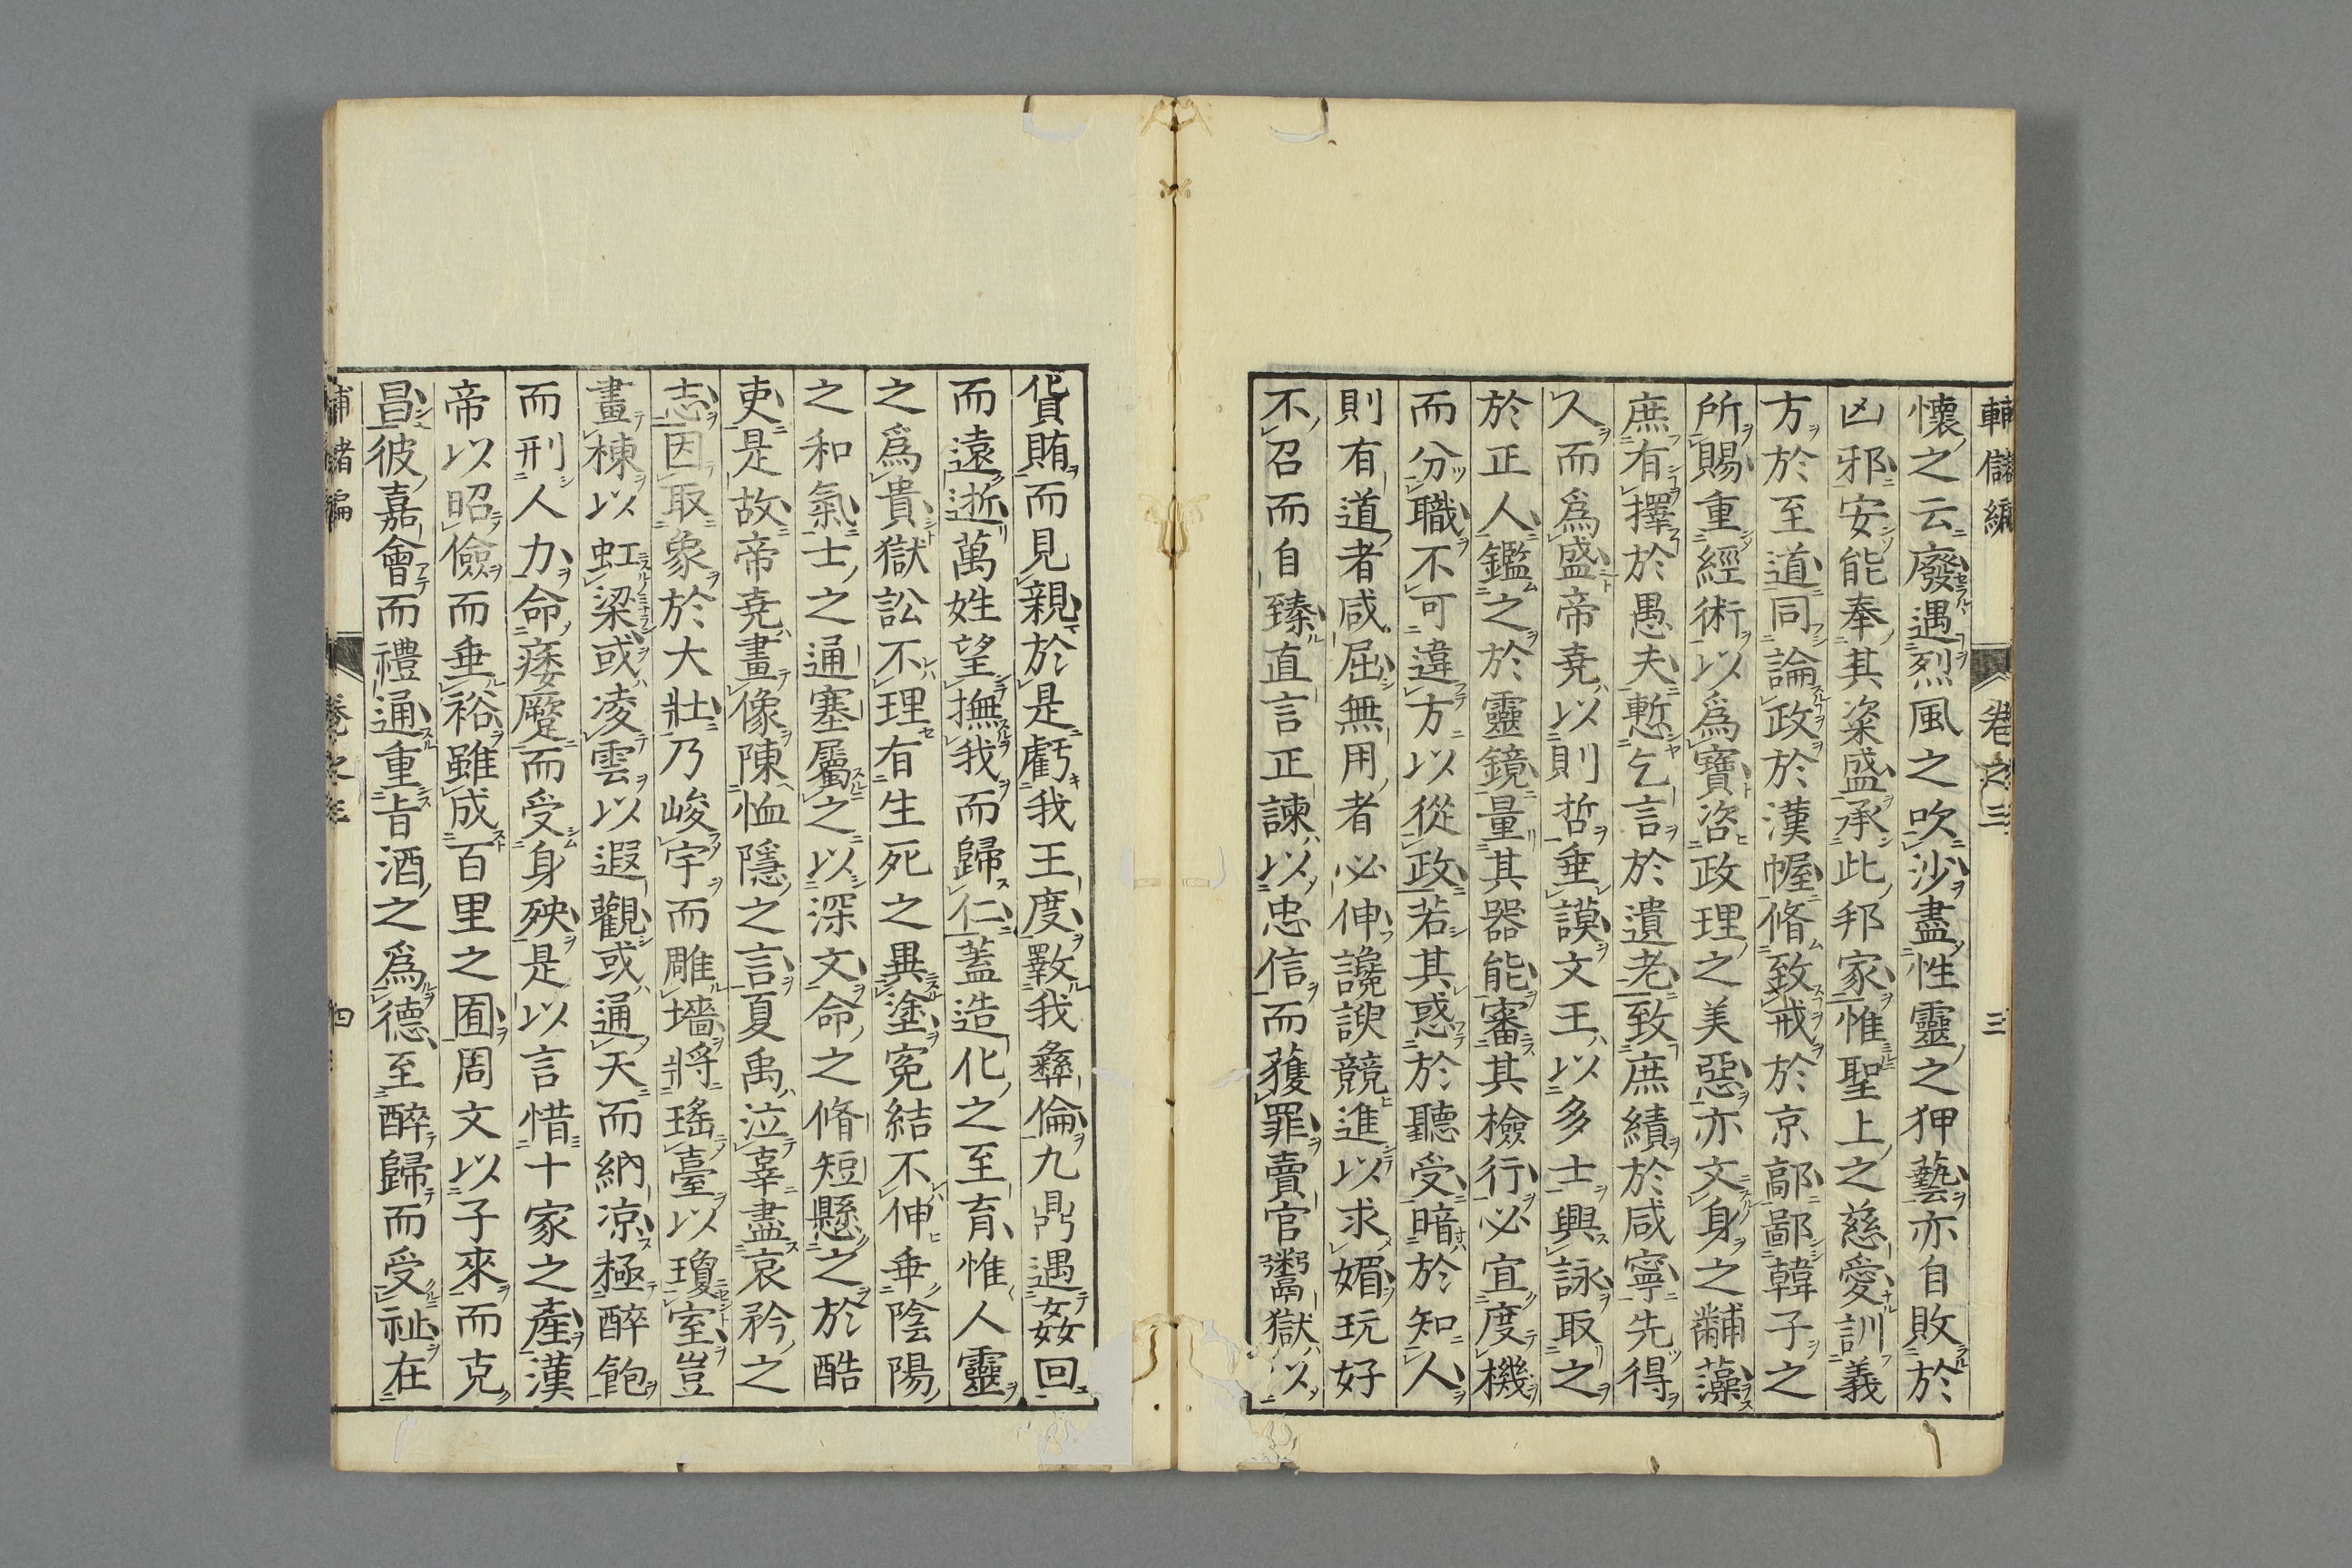 輔儲編 卷之三 三
懷之云廢遇烈風之吹沙盡性靈之狎藝亦自敗於
凶邪安能奉其粢盛承此邦家惟聖上之慈愛訓義
方於至道同論政於漢幄脩致戒於京鄗鄙韓子之
所賜重經術以爲寶咨政理之美惡亦文身之黼藻
庶有擇於愚夫慙乞言於遺老致庶績於咸寧先得
人而爲盛帝堯以則哲垂謨文王以多士興詠取之
於正人鑑之於靈鏡量其器能審其檢行必宜度機
而分職不可違方以從政若其惑於聽受暗於知人
則有道者咸屈無用者必伸讒諛競進以求媚玩好
不召而自臻直言正諫以忠信而獲罪賣官鬻獄以
貨賄而見親於是虧我王度斁我彝倫九鼎遇姦回
而遠逝萬姓望撫我而歸仁蓋造化之至育惟人靈
之爲貴獄訟不理有生死之異塗冤結不伸乖陰陽
之和氣士之通塞屬之以深文命之脩短懸之於酷
吏是故帝堯畫像陳恤隱之言夏禹泣辜盡哀矜之
志因取象於大壯乃峻宇而雕墻將瑤臺以瓊室豈
畫棟以虹梁或凌雲以遐觀或通天而納凉極醉飽
而刑人力命痿蹷而受身殃是以言惜十家之產漢
帝以昭儉而垂裕雖成百里之囿周文以子來而克
昌彼嘉會而禮通重旨酒之爲德至醉歸而受祉在